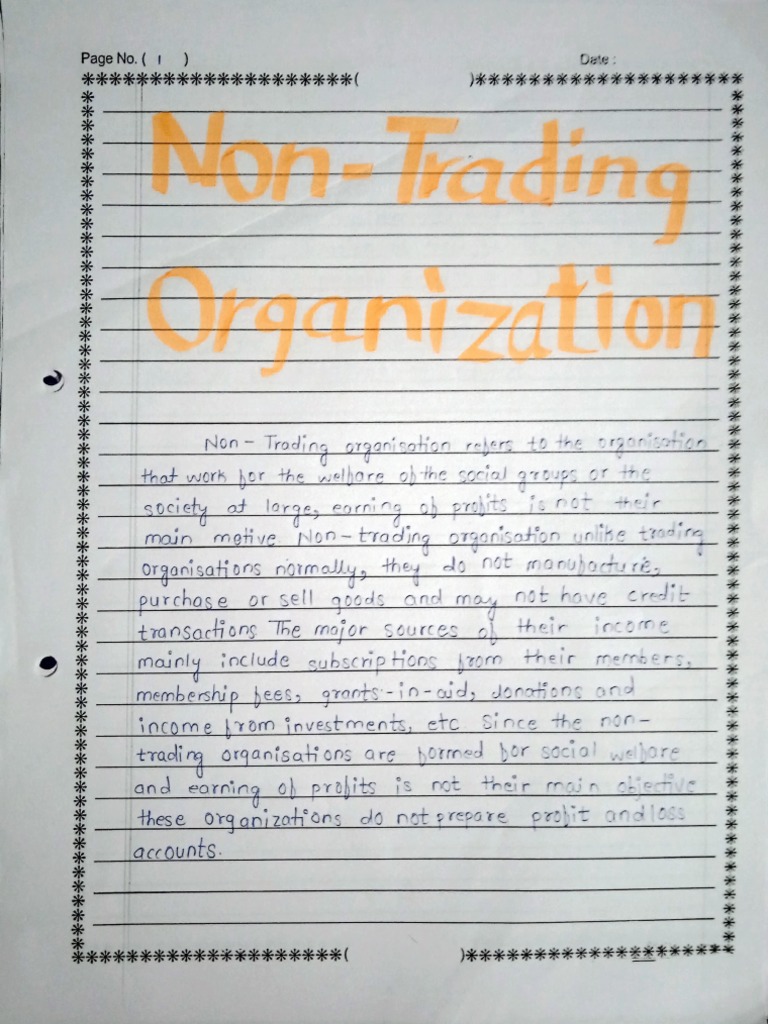 Page No. ( 1 ) Date :
Non-Trading
Organization
Non - Trading organisation refers to the organisation
that work for the welfare of the social groups or the
society at large, earning of profits is not their
main motive. Non-trading organisation unlike trading
organisations normally, they do not manufacture,
purchase or sell goods and may not have credit
transactions The major sources of their income
mainly include subscriptions from their members,
membership fees, grants-in-aid, donations and
income from investments, etc Since the non-
trading organisations are formed for social welfare
and earning of profits is not their main objective
these organizations do not prepare profit and loss
accounts.